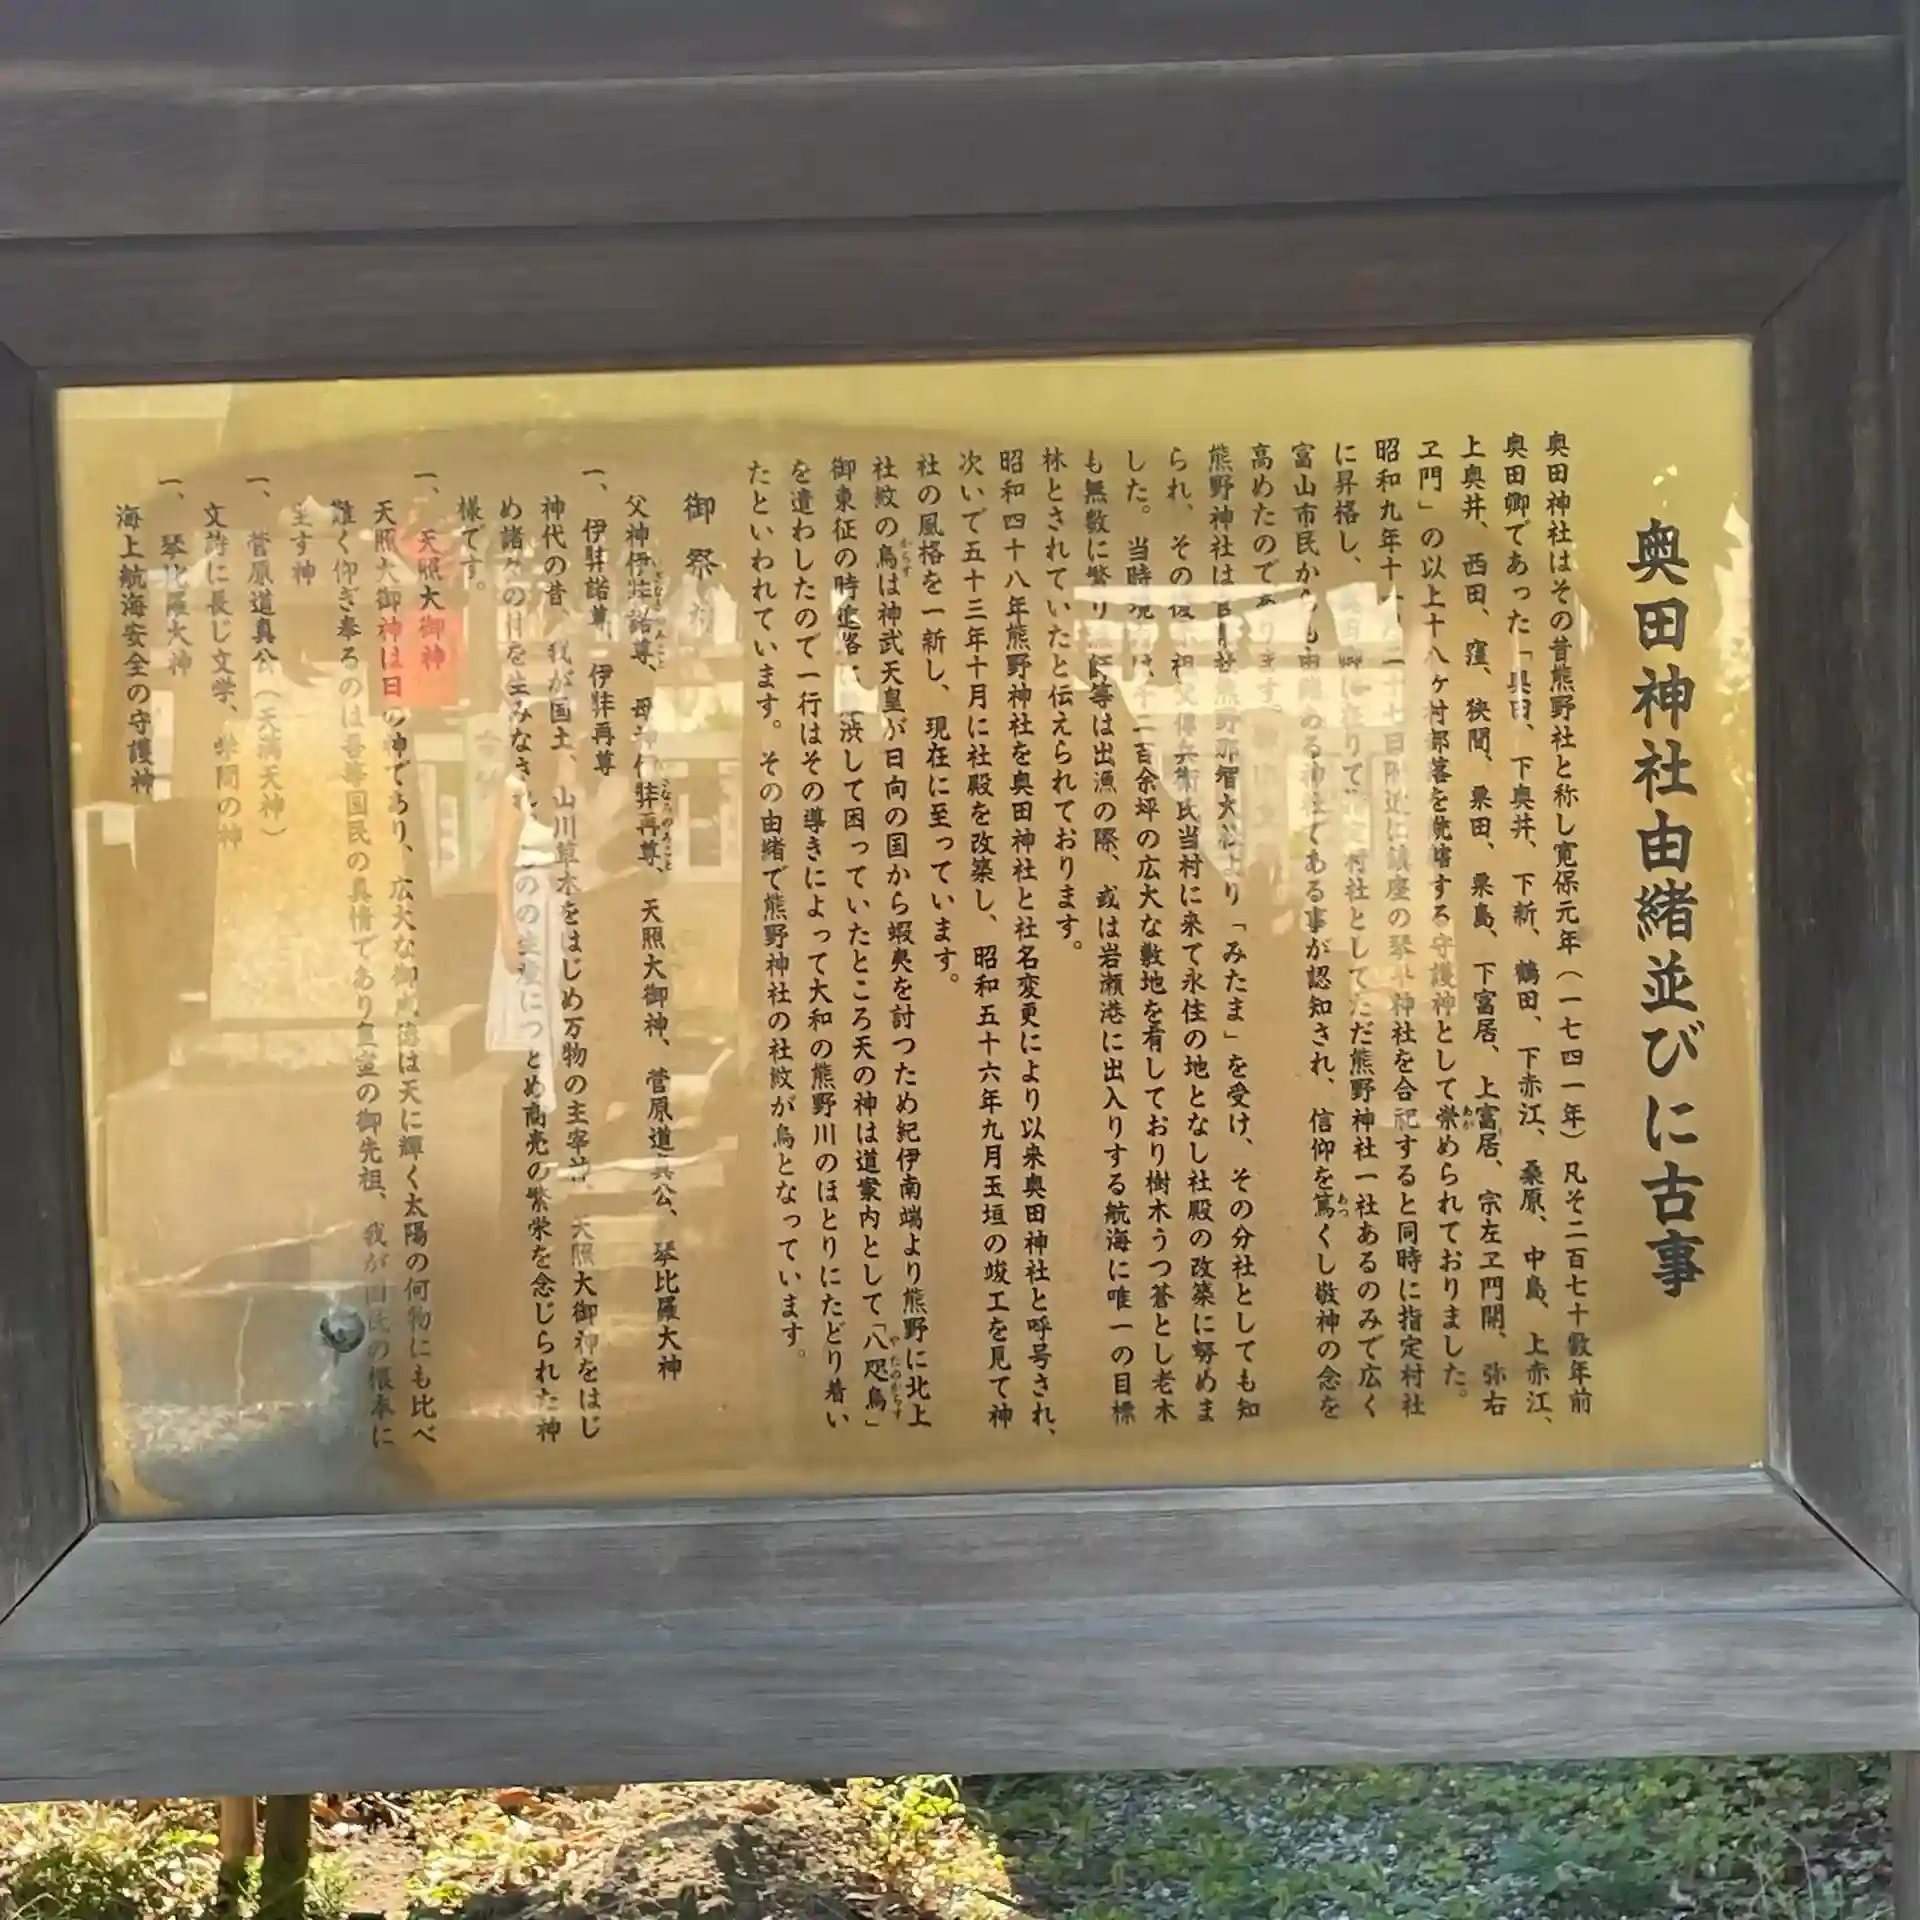 奥田神社由緒並びに古事
奥田神社はその昔熊野社と称し寛保元年(一七四一年)凡そ二百七十数年前
奥田郷であった「奥田、下奥井、下新、鶴田、下赤江、桑原、中島、上赤江、
上奥井、西田、窪、狭間、粟田、粟島、下富居、上富居、宗左ヱ門開、弥右
ヱ門」の以上十八ヶ村部落を統轄する守護神として崇められておりました。
昭和九年十 二十七日附近に鎮座の琴平神社を合祀すると同時に指定村社
に昇格し、 村社としてただ熊野神社一社あるのみで広く
富山市民からも由緒ある神社である事が認知され、信仰を篤くし敬神の念を
高めたのであります。
熊野神社は 社熊野那智大社より「みたま」を受け、その分社としても知
られ、その後 兵衛氏当村に来て永住の地となし社殿の改築に努めま
した。当時境 は、千二百余坪の広大な敷地を有しており樹木うつ蒼とし老木
も無数に繁り 漁師等は出漁の際、或は岩瀬港に出入りする航海に唯一の目標
林とされていたと伝えられております。
昭和四十八年熊野神社を奥田神社と社名変更により以来奥田神社と呼号され、
次いで五十三年十月に社殿を改築し、昭和五十六年九月玉垣の竣工を見て神
社の風格を一新し、現在に至っています。
社紋の烏は神武天皇が日向の国から蝦夷を討つため紀伊南端より熊野に北上
御東征の時進路に難渋して困っていたところ天の神は道案内として「八咫烏」
を遣わしたので一行はその導きによって大和の熊野川のほとりにたどり着い
たといわれています。その由緒で熊野神社の社紋が烏となっています。
御祭神
父神伊弉諾尊、母神伊弉再尊、天照大御神、菅原道真公、琴比羅大神
一、伊弉諾尊 伊弉再尊
神代の昔、我が国土、山川草木をはじめ万物の主宰神、天照大御神をはじ
め諸々の神を生みなされ、ものの生産につとめ商売の繁栄を念じられた神
様です。
一、天照大御神
天照大御神は日の神であり、広大な御威徳は天に輝く太陽の何物にも比べ
難く仰ぎ奉るのは吾等国民の真情であり皇室の御先祖、我が国民の根本に
坐す神
一、菅原道真公(天満天神)
文詩に長じ文学、学問の神
一、琴比羅大神
海上航海安全の守護神